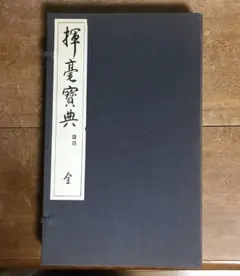 揮毫寳典
全